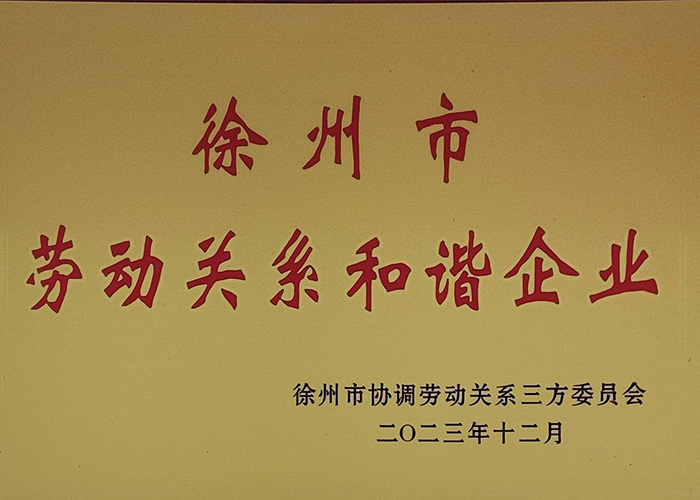 徐州市
劳动关系和谐企业
徐州市协调劳动关系三方委员会
二〇二三年十二月